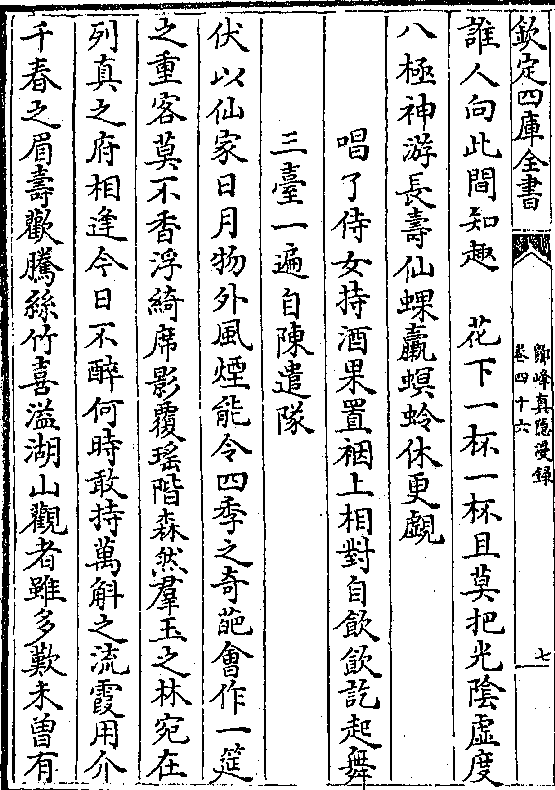 欽定四庫全書
鄮峰真隱漫錄
卷四十六
七
誰人向此間知趣　花下一杯一杯且莫把光陰虛度
八極神游長壽仙蜾蠃螟蛉休更覷
唱了侍女持酒果置裀上相對自飲飲訖起舞
三臺一遍自陳遣隊
伏以仙家日月物外風煙能令四季之奇葩會作一筵
之重客莫不香浮綺席影覆瑤階森然羣玉之林宛在
列真之府相逢今日不醉何時敢持萬斛之流霞用介
千春之眉壽歡騰絲竹喜溢湖山觀者雖多歎未曾有